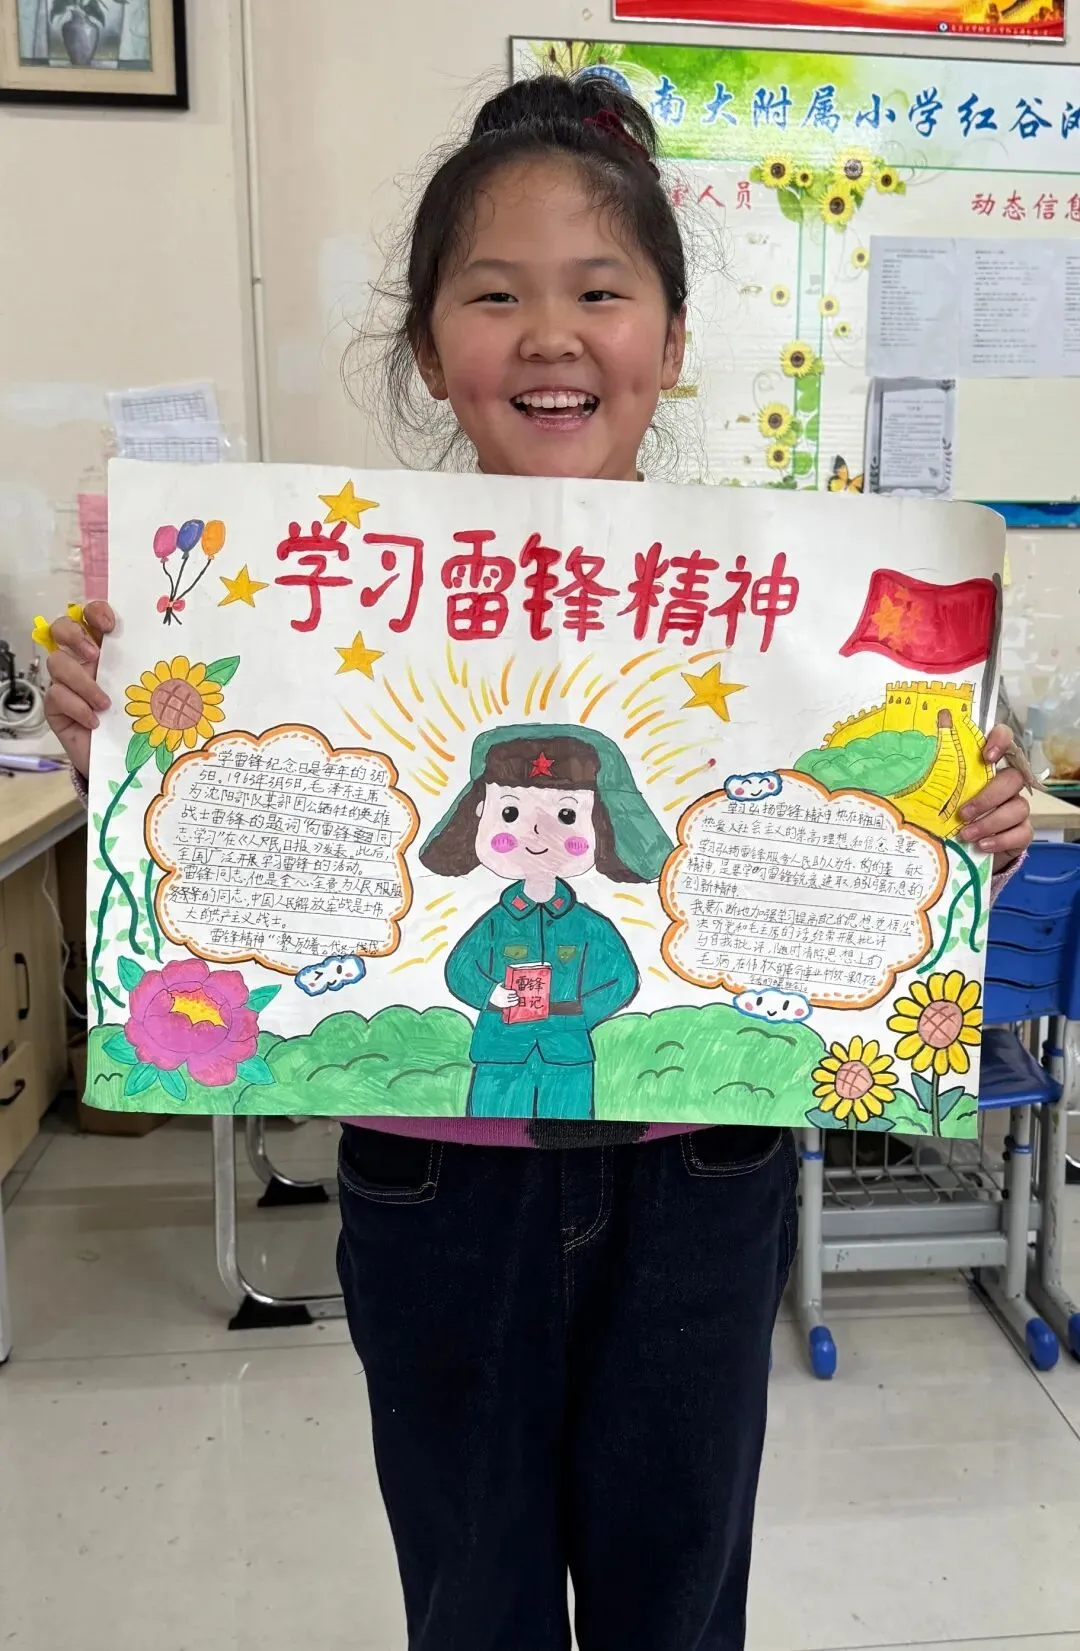 南大附属小学红谷
人员
动态信息
学习雷锋精神
学雷锋纪念日是每年的3月
5日。1963年3月5日,毛泽东主席
为沈阳部队某部因公牺牲的英雄
战士雷锋的题词“向雷锋同
志学习”在《人民日报》发表。此后,
全国广泛开展学习雷锋的活动。
雷锋同志,他是全心全意为人民服
务的同志,中国人民解放军战士伟
大的共产主义战士。
雷锋精神“激励着一代又一代
雷锋
日记
学习弘扬雷锋精神热在祖国
热爱人社会主义的崇高理想和信念
学习弘扬雷锋服务人民助人为乐的
精神,是要学习雷锋锐意进取、自强不息的
创新精神
我要不断地加强学习提高自己的思想觉悟
决听党和毛主席的话经常开展批评
与自我批评,随时清除思想上的
毛病,在伟大的革命事业中